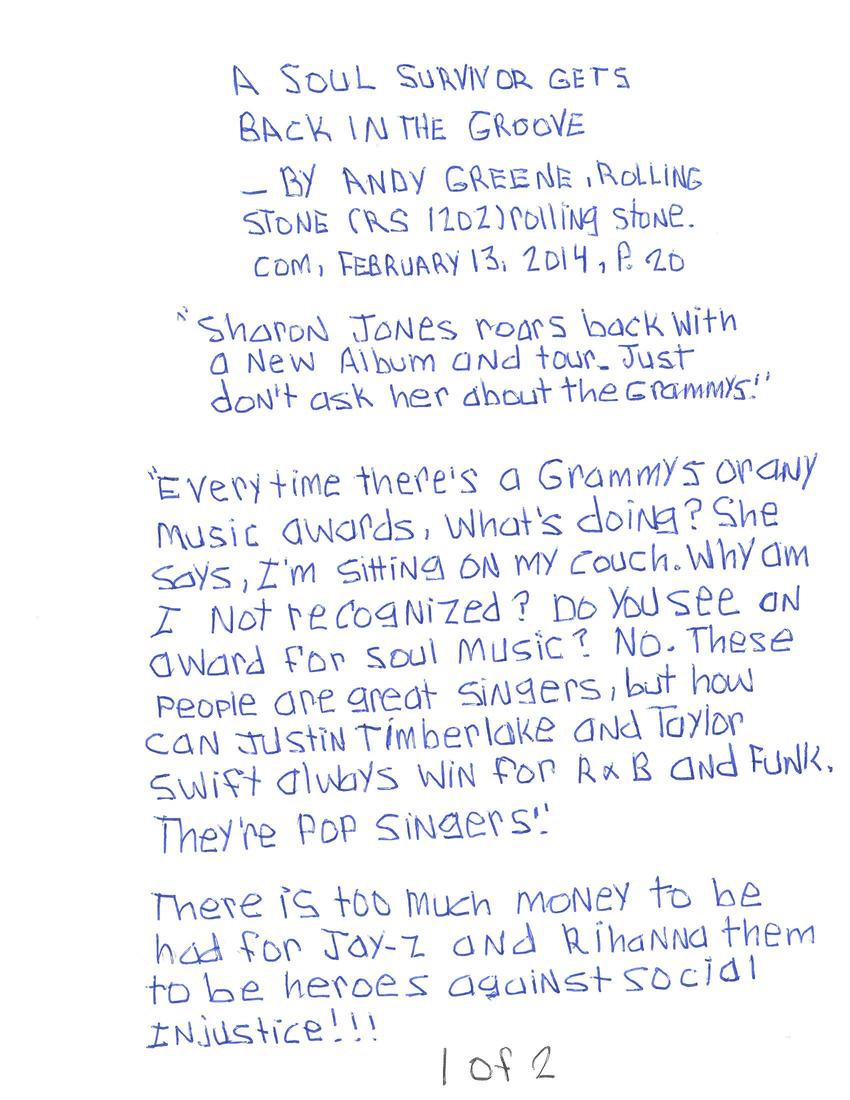 A SOUL SURVIVOR GETS
BACK IN THE GROOVE
— BY ANDY GREENE, ROLLING
STONE (RS 1202) rolling stone.
COM, FEBRUARY 13, 2014, P. 20
"Sharon Jones roars back with
a New Album and tour. Just
don't ask her about the Grammys!"
"Everytime there's a Grammys or any
music awards, What's doing? She
says, I'm sitting on my couch. Why am
I Not recognized? Do You see an
award for soul music? No. These
people are great singers, but how
can Justin Timberlake and Taylor
Swift always win for R&B and Funk.
They're Pop singers!"
There is too much money to be
had for Jay-Z and Rihanna them
to be heroes against social
INjustice!!!
1 of 2